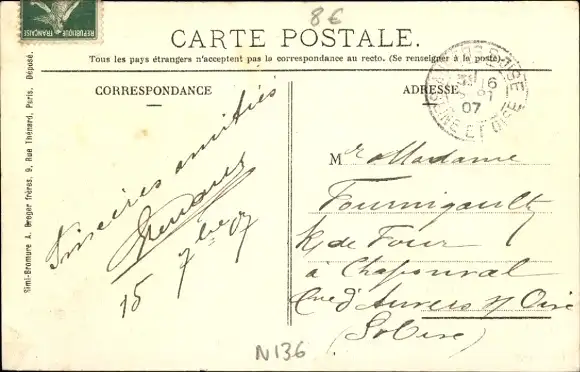 8€
RÉPUBLIQUE FRANÇAISE
CARTE POSTALE.
Tous les pays étrangers n'acceptent pas la correspondance au recto. (Se renseigner à la poste)
CORRESPONDANCE
Sincères amitiés
15 7bre 07
ADRESSE
16
07
SEINE ET OISE
Mr & Madame
Fournigault
R. de Four
à Chaponval
Cne d'Auvers s/ Oise
(S. Oise)
N136
Simi-Bromure A. Breger frères, 9, Rue Thénard, Paris. Déposé.